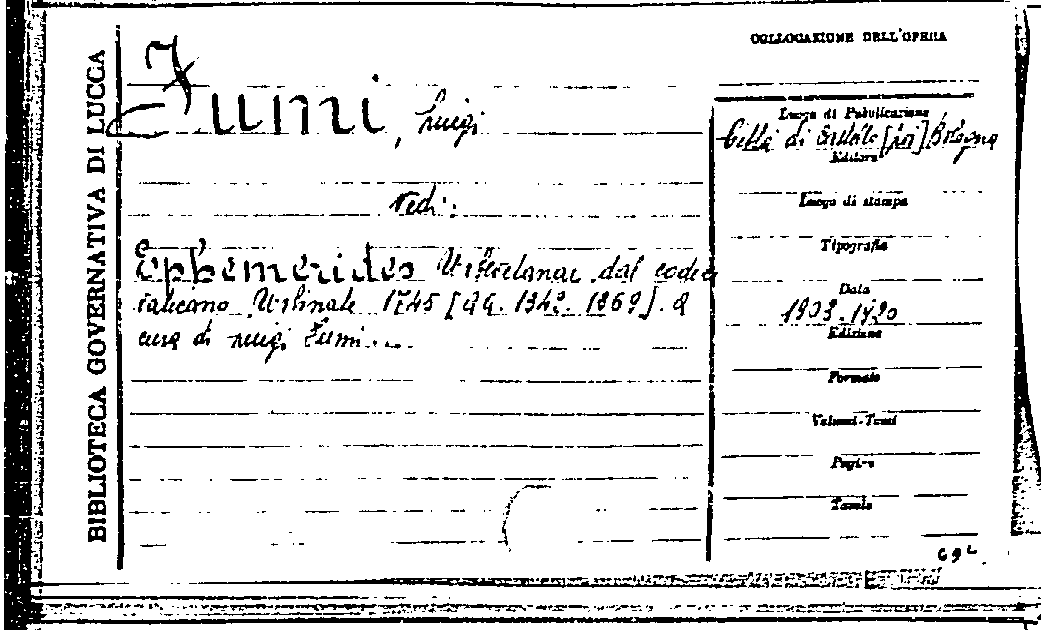 BIBLIOTECA GOVERNATIVA DI LUCCA
COLLOCAZIONE DELL'OPERA
Fumi, Luigi
Vedi:
Ephemerides Urbevetanae dal codice
vaticano Urbinate 1745 [aa. 1342-1369]. a
cura di Luigi Fumi...
Luogo di Pubblicazione
Città di Castello [poi] Bologna
Editore
Luogo di stampa
Tipografia
Data
1903-1920
Edizione
Formato
Volumi-Tomi
Pagine
Tavole